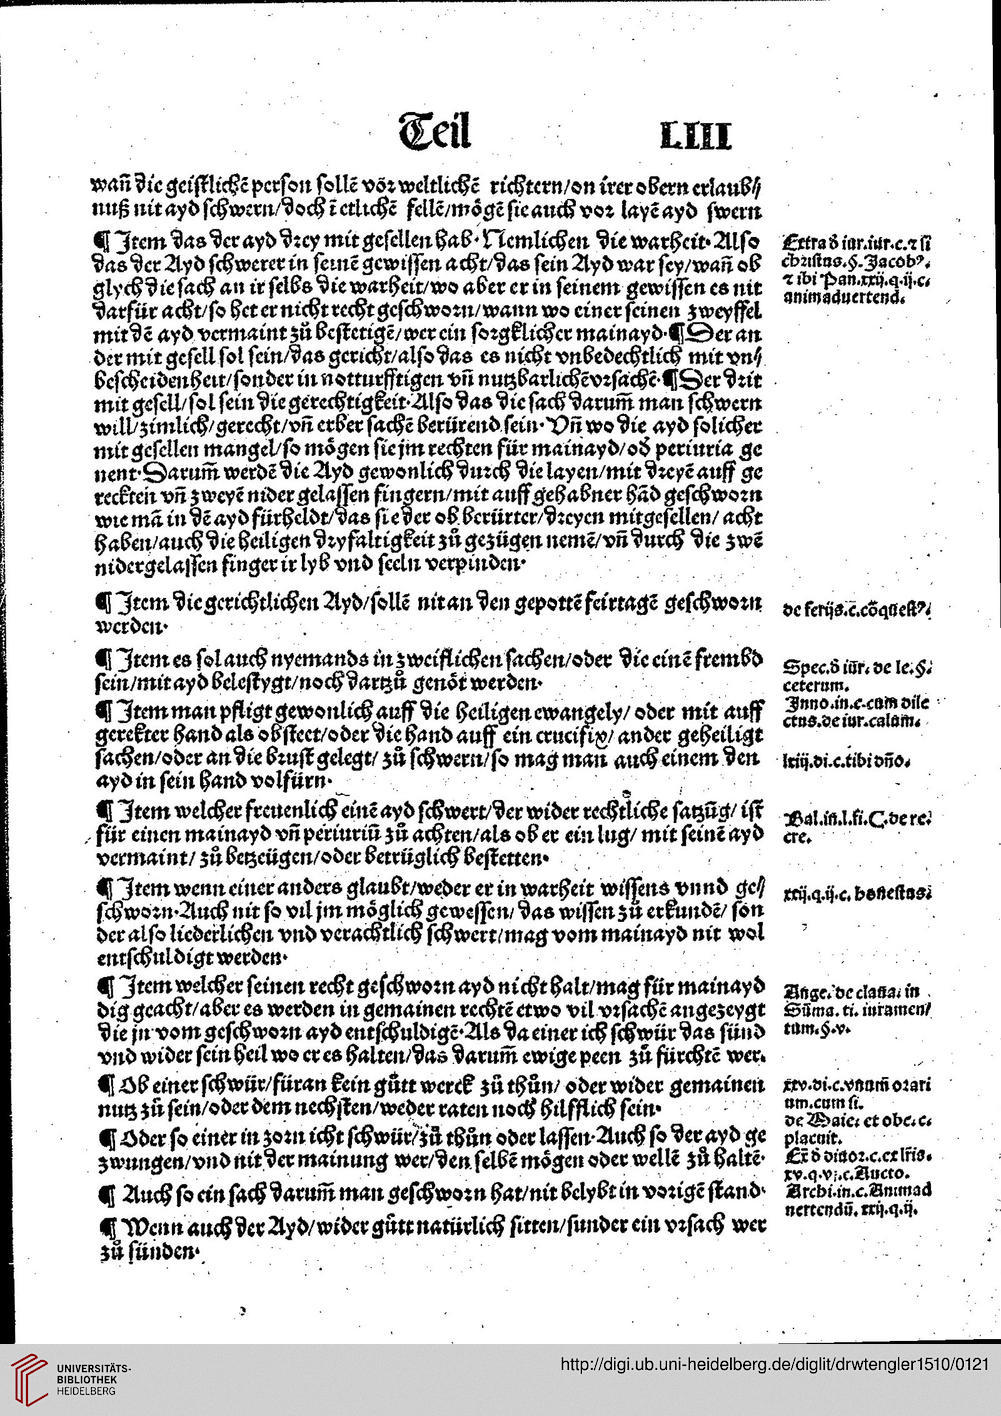 Teil LIII
wañ die geistlichẽ person sollẽ võr weltlichẽ richtern/on irer obern erlaub⸗
nuß nit ayd schwern/doch ĩ etlichẽ fellẽ/mögẽ sie auch vor layẽ ayd swern
¶ Item das der ayd drey mit gesellen hab. Nemlichen die warheit. Also
das der Ayd schwerer in seinẽ gewissen acht/das sein Ayd war sey/wañ ob
glych die sach an ir selbs die warheit/wo aber er in seinem gewissen es nit
darfür acht/so het er nicht recht geschworn/wann wo einer seinen zweyffel
mit dẽ ayd vermaint zů bestetigẽ/wer ein sorgklicher mainayd.¶Der an
der mit gesell sol sein/das gericht/also das es nicht vnbedechtlich mit vn⸗
bescheidenheit/sonder in notturfftigen vñ nutzbarlichẽ vrsachẽ.¶Der drit
mit gesell/sol sein die gerechtigkeit.Also das die sach darum̃ man schwern
will/zimlich/gerecht/vñ erber sachẽ berürend sein.Vñ wo die ayd solicher
mit gesellen mangel/so mögen sie jm rechten für mainayd/od̕ periuria ge
nent.Darum̃ werdẽ die Ayd gewonlich durch die layen/mit dreyẽ auff ge
reckten vñ zweyẽ nider gelassen fingern/mit auff gehabner hãd geschworn
wie mã in dẽ ayd fürheldt/das sie der ob berürter/dreyen mitgesellen/ acht
haben/auch die heiligen dryfaltigkeit zů gezügen nemẽ/vñ durch die zwẽ
nidergelassen finger ir lyb vnd seeln verpinden.
¶ Item die gerichtlichen Ayd/sollẽ nit an den gepottẽ feirtagẽ geschworn
werden.
¶ Item es sol auch nyemands in zweiflichen sachen/oder die einẽ frembd
sein/mit ayd belestygt/noch dartzů genöt werden.
¶ Item man pfligt gewonlich auff die heiligen ewangely/ oder mit auff
gerekter hand als obstect/oder die hand auff ein crucifix/ ander geheiligt
sachen/oder an die brust gelegt/ zů schwern/so mag man auch einem den
ayd in sein hand volfürn.
¶ Item welcher freuenlich einẽ ayd schwert/der wider rechtliche satzũg/ ist
für einen mainayd vñ periurim̃ zů achten/als ob er ein lug/ mit seinẽ ayd
vermaint/ zů betzeügen/oder betrüglich bestetten.
¶ Item wenn einer anders glaubt/weder er in warheit wissens vnnd ge⸗
schworn.Auch nit so vil jm möglich gewessen/ das wissen zů erkundẽ/ son
der also liederlichen vnd verachtlich schwert/mag vom mainayd nit wol
entschuldigt werden.
¶ Item welcher seinen recht geschworn ayd nicht halt/mag für mainayd
dig geacht/aber es werden in gemainen rechtẽ etwo vil vrsachẽ angezeygt
die jn vom geschworn ayd entschuldigẽ.Als da einer ich schwür das sünd
vnd wider sein heil wo er es halten/das darum̃ ewige peen zů fürchtẽ wer.
¶ Ob einer schwür/füran kein gůtt werck zů thůn/ oder wider gemainen
nutz zů sein/oder dem nechsten/weder raten noch hilfflich sein.
¶ Oder so einer in zorn icht schwür/zů thůn oder lassen.Auch so der ayd ge
zwungen/vnd nit der mainung wer/den selbẽ mögen oder wellẽ zů haltẽ.
¶ Auch so ein sach darum̃ man geschworn hat/nit belybt in vorigẽ stand.
¶ Wenn auch der Ayd/wider gůtt natürlich sitten/sunder ein vrsach wer
zů sünden.
Extra d̕ iur.iur.c.⁊ si
christus.§.Jacobꝰ.
⁊ ibi Pan.xxij.q.ij.c.
animaduertend.
de ferijs.c.cõquestꝰ.
Spec.d̕ iür. de le.§.
ceterum.
Inno.in.c.cum dile
ctus.de iur.calum.
lxiij.di.c.tibi dño.
Bal.in.l.fi.C.de re.
cre.
xxij.q.ij.c. honestas.
Ange. de clasia. in
Sũma. ti. iuramen⸗
tum.§.v.
xxv.di.c.vnum̃ orari
um.cum si.
de Maio. et obe.c.
placuit.
Ex̃ d̕ diuor.c.ex lr̃is.
xv.q.vj.c.Aucto.
Archi.in.c.Animad
uertendũ. xxij.q.ij.
UNIVERSITÄTS-
BIBLIOTHEK
HEIDELBERG
http://digi.ub.uni-heidelberg.de/diglit/drwtengler1510/0121